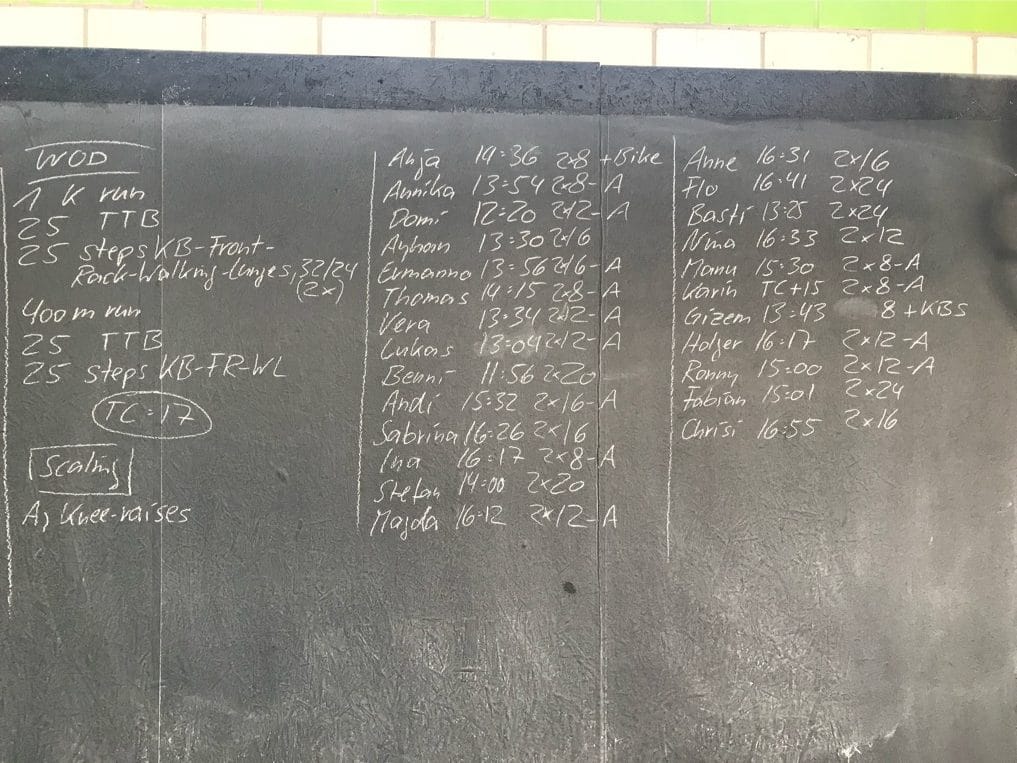 WOD
1 K run
25 TTB
25 steps KB-Front-
Rack-Walking-Lunges, 32/24
(2x)
400m run
25 TTB
25 steps KB-FR-WL
TC=17
Scaling
A, Knee-raises
Anja 14:36 2x8 + Bike
Annika 13:54 2x8-A
Domi 12:20 2x12-A
Ayhan 13:30 2x16
Ermanno 13:56 2x16-A
Thomas 14:15 2x8-A
Vera 13:34 2x12-A
Lukas 13:04 2x12-A
Benni 11:56 2x20
Andi 15:32 2x16-A
Sabrina 16:26 2x16
Ina 16:17 2x8-A
Stefan 14:00 2x20
Majda 16:12 2x12-A
Anne 16:31 2x16
Flo 16:41 2x24
Basti 13:25 2x24
Nina 16:33 2x12
Manu 15:30 2x8-A
Karin TC+15 2x8-A
Gizem 13:43 8 + KBS
Holger 16:17 2x12-A
Ronny 15:00 2x12-A
Fabian 15:01 2x24
Chrisi 16:55 2x16